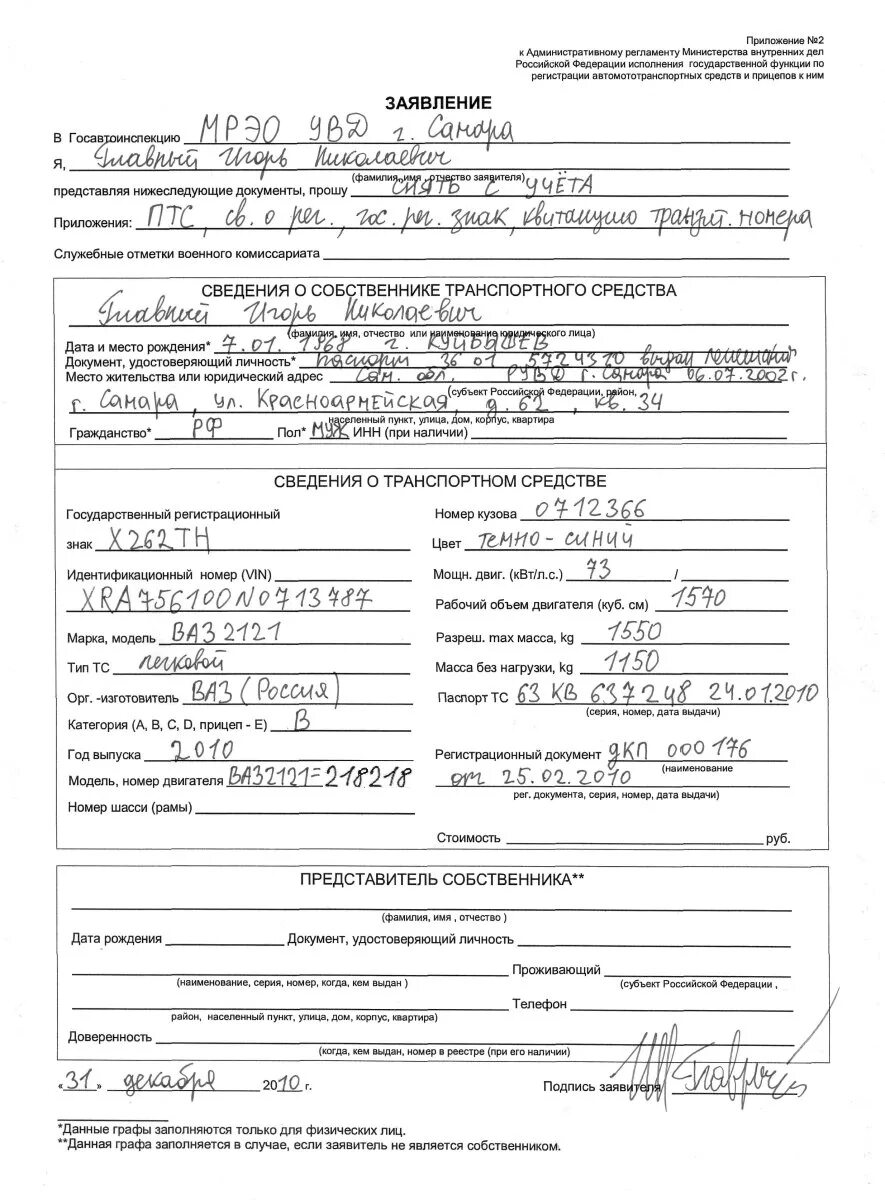 Приложение №2
к Административному регламенту Министерства внутренних дел
Российской Федерации исполнения государственной функции по
регистрации автомототранспортных средств и прицепов к ним
ЗАЯВЛЕНИЕ
В Госавтоинспекцию МРЭО УВД г. Самара
Я, Главный Игорь Николаевич
(фамилия, имя, отчество заявителя)
представляя нижеследующие документы, прошу СНЯТЬ С УЧЁТА
Приложения: ПТС, св. о рег., гос. рег. знак, квитанцию транзит. номера
Служебные отметки военного комиссариата
СВЕДЕНИЯ О СОБСТВЕННИКЕ ТРАНСПОРТНОГО СРЕДСТВА
Главный Игорь Николаевич
(фамилия, имя, отчество или наименование юридического лица)
Дата и место рождения* 7.01.1968 г. КУЙБЫШЕВ
Документ, удостоверяющий личность* паспорт 36 01 5724370 выдан Ленинским
Место жительства или юридический адрес Сам. обл, РУВД г. Самара 06.07.2002г.
(субъект Российской Федерации, район,
г. Самара, ул. Красноармейская, д. 62, кв. 34
населенный пункт, улица, дом, корпус, квартира
Гражданство* РФ Пол* МУЖ ИНН (при наличии)
СВЕДЕНИЯ О ТРАНСПОРТНОМ СРЕДСТВЕ
Государственный регистрационный
знак Х262ТН
Идентификационный номер (VIN)
XRA756100N0713787
Марка, модель ВАЗ 2121
Тип ТС легковой
Орг. -изготовитель ВАЗ (Россия)
Категория (A, B, C, D, прицеп - E) B
Год выпуска 2010
Модель, номер двигателя ВАЗ2121=218218
Номер шасси (рамы)
Номер кузова 0712366
Цвет темно-синий
Мощн. двиг. (кВт/л.с.) 73 /
Рабочий объем двигателя (куб. см) 1570
Разреш. max масса, kg 1550
Масса без нагрузки, kg 1150
Паспорт ТС 63 КВ 637248 24.01.2010
(серия, номер, дата выдачи)
Регистрационный документ ДКП 000176
(наименование
от 25.02.2010
рег. документа, серия, номер, дата выдачи)
Стоимость руб.
ПРЕДСТАВИТЕЛЬ СОБСТВЕННИКА**
(фамилия, имя , отчество )
Дата рождения Документ, удостоверяющий личность
Проживающий
(наименование, серия, номер, когда, кем выдан ) (субъект Российской Федерации ,
Телефон
район, населенный пункт, улица, дом, корпус, квартира)
Доверенность
(когда, кем выдан, номер в реестре (при его наличии)
«31» декабря 2010 г. Подпись заявителя
*Данные графы заполняются только для физических лиц.
**Данная графа заполняется в случае, если заявитель не является собственником.